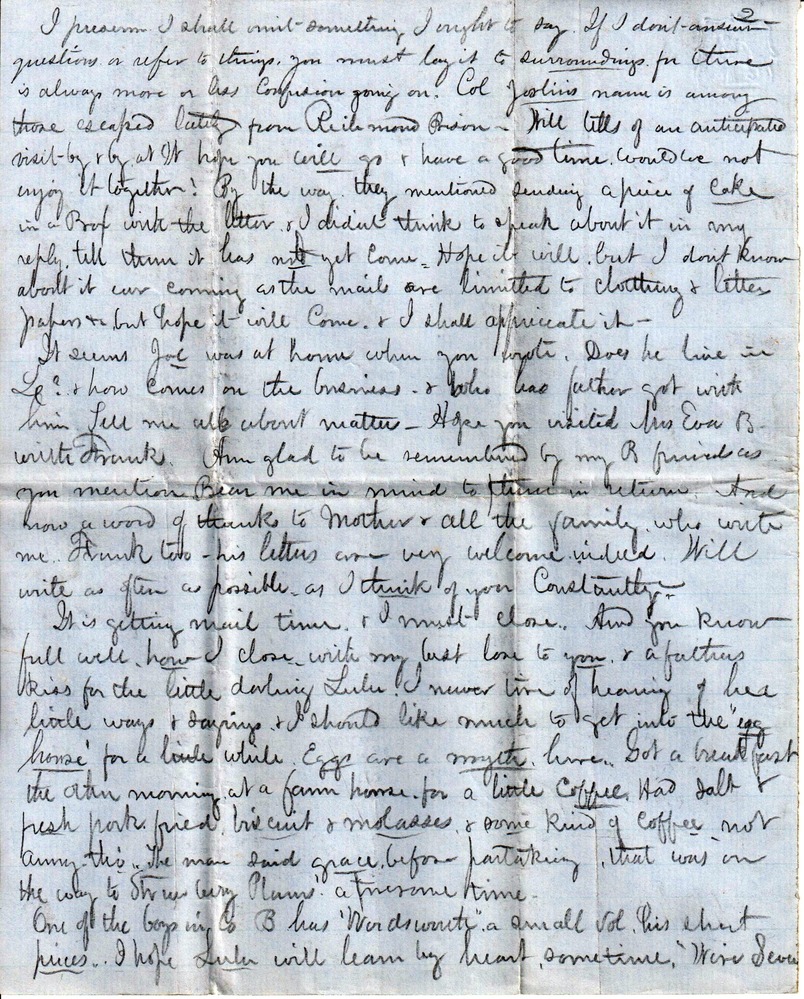 2
I presum I shall omit something I ought to say. If I don't answer
questions or refer to things, you must lay it to surroundings for there
is always more or less confusion going on. Col Joslins name is among
those escaped lately from Richmond Prison - Will tells of an anticipated
visit by & by at W hope you will go & have a good time. Would we not
enjoy it together! By the way, they mentioned sending a piece of Cake
in a Box with the letter & I didn't think to speak about it in my
reply, tell them it has not yet come - Hope it will, but I dont know
about it ever coming as the mails are limited to clothing & letter
papers & but hope it will Come. & I shall appreciate it -
It seems Joe was at home when you wrote. Does he live in
& how comes on the business - & Who has father got with
him Tell me all about matters - Hope you visited Mrs Eva B-
with Frank. Am glad to be remembered by my B friends as
you mention Bear me in mind to them in return. And
now a word of thanks to Mother & all the family who write
me. Frank too - his letters are very welcome indeed. Will
write as often as possible as I think of you Constantly -
It is getting mail time, & I must close. And you know
full well how I close, with my best love to you, & a fathers
kiss for the little darling Lulu. I never tire of hearing of her
little ways & sayings & I should like much to get into the "egg
house" for a little while. Eggs are a myth here. Got a breakfast
the other morning at a farm house for a little Coffee. Had Salt &
fresh pork fried, biscuit & molasses, & some kind of Coffee not
Army tho'. The man said grace before partaking, that was on
the way to Strawberry Plains' a tiresome time -
One of the boys in Co B has "Wordsworth" a small Vol, his short
pieces. I hope Lulu will learn by heart sometime, "We're Seven